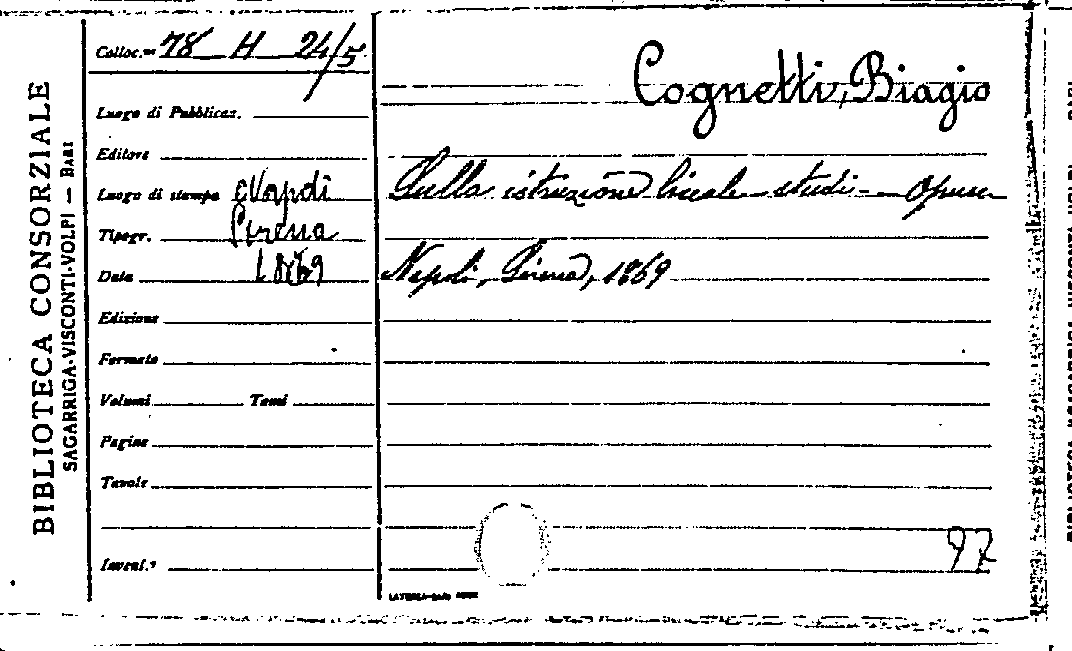 BIBLIOTECA CONSORZIALE
SAGARRIGA-VISCONTI-VOLPI — BARI
Colloc.ne 78 H 24/5
Luogo di Pubblicaz.
Editore
Luogo di stampa Napoli
Tipogr. Perena
Data 1869
Edizione
Formato
Volumi Tomi
Pagine
Tavole
Invent.°
Cognetti, Biagio
Sulla istruzione liceale studi - Opusc
Napoli, 1869
97
LATERZA-BARI